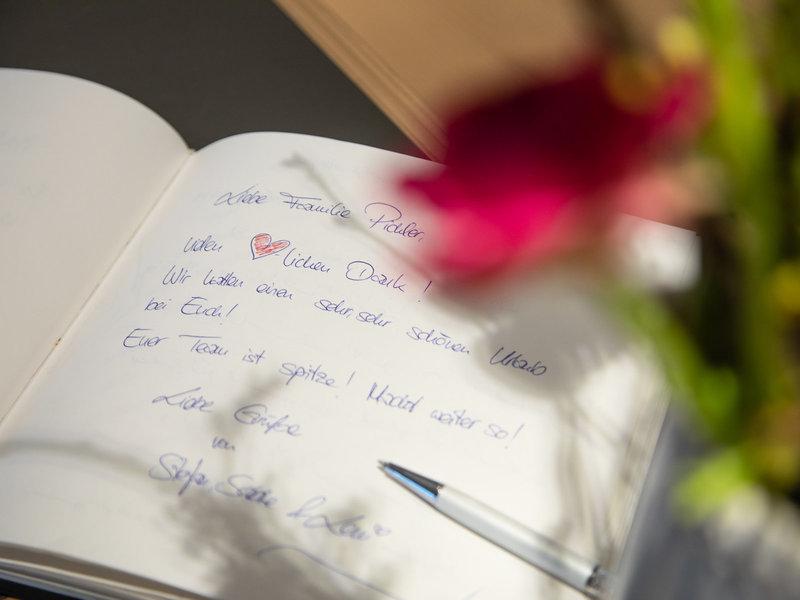 Liebe Familie Pichler,
vielen ♥lichen Dank!
Wir hatten einen sehr, sehr schönen Urlaub
bei Euch!
Euer Team ist spitze! Macht weiter so!
Liebe Grüße
von